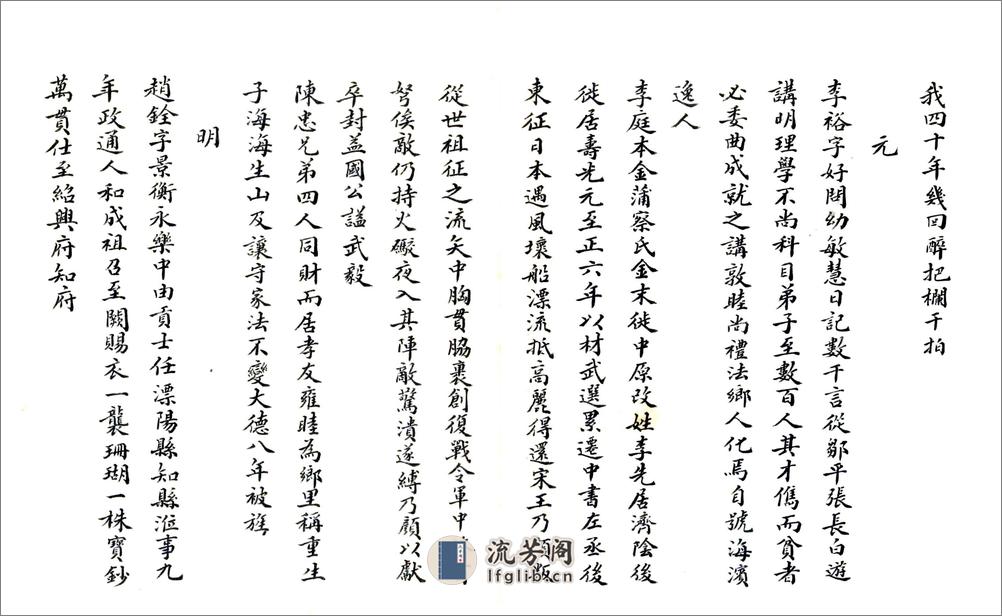 我四十年幾回醉把欄干拍
元
李裕字好問幼敏慧日記數千言從鄒平張長白遊
講明理學不尚科目弟子至數百人其才儁而貧者
必委曲成就之講敦睦尚禮法鄉人化焉自號海濱
逸人
李庭本金蒲察氏金末徙中原改姓李先居濟陰後
徙居壽光元至正六年以材武選累遷中書左丞後
東征日本遇風壞船漂流抵高麗得還宋王乃顏叛
從世祖征之流矢中胸貫脇裹創復戰令軍中
弩俟敵仍持火礮夜入其陣敵驚潰遂縛乃顏以獻
卒封益國公謚武毅
陳忠兄弟四人同財而居孝友雍睦為鄉里稱重生
子海海生山及讓守家法不變大德八年被旌
明
趙銓字景衡永樂中由貢士任漂陽縣知縣涖事九
年政通人和成祖召至闕賜衣一襲珊瑚一株寶鈔
萬貫仕至紹興府知府
流芳阁
lfglib.cn